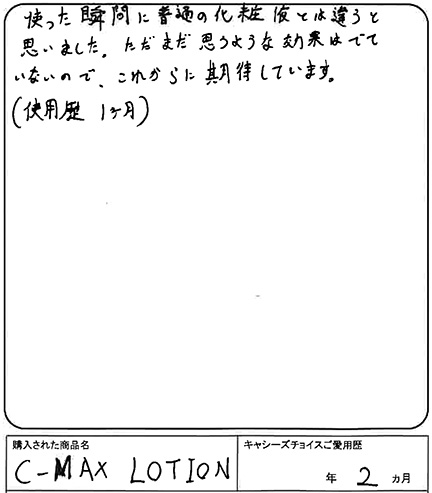 使った瞬間に普通の化粧液とは違うと
思いました。ただまだ思うような効果はでて
いないので、これからに期待しています。
(使用歴 1ヶ月)
購入された商品名
キャシーズチョイスご愛用歴
C-MAX LOTION
年 2 カ月